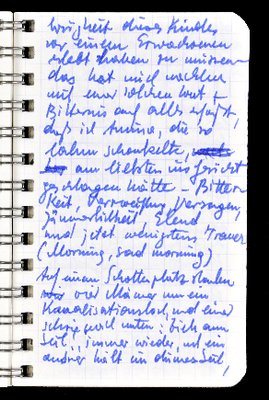 losigkeit dieses Kindes
vor einem Erwachsenen
erlebt haben zu müssen
das hat mich nachher
mit einer solchen Wut +
Bitternis auf alles erfaßt,
daß ich Anna, die so
lahm schenkelte,
am liebsten ins Gesicht
geschlagen hätte - Bitter
keit, Verzweiflung, Versagen,
Jämmerlichkeit, Elend
und jetzt wenigstens Trauer
(Morning, sad morning)
Auf einem Schotterplatz standen
vier Männer um ein
Kanalisationsloch, und einer
schrie nach unten: Zieh am
Seil!, immer wieder, und ein
andrer hielt ein dünnes Seil,